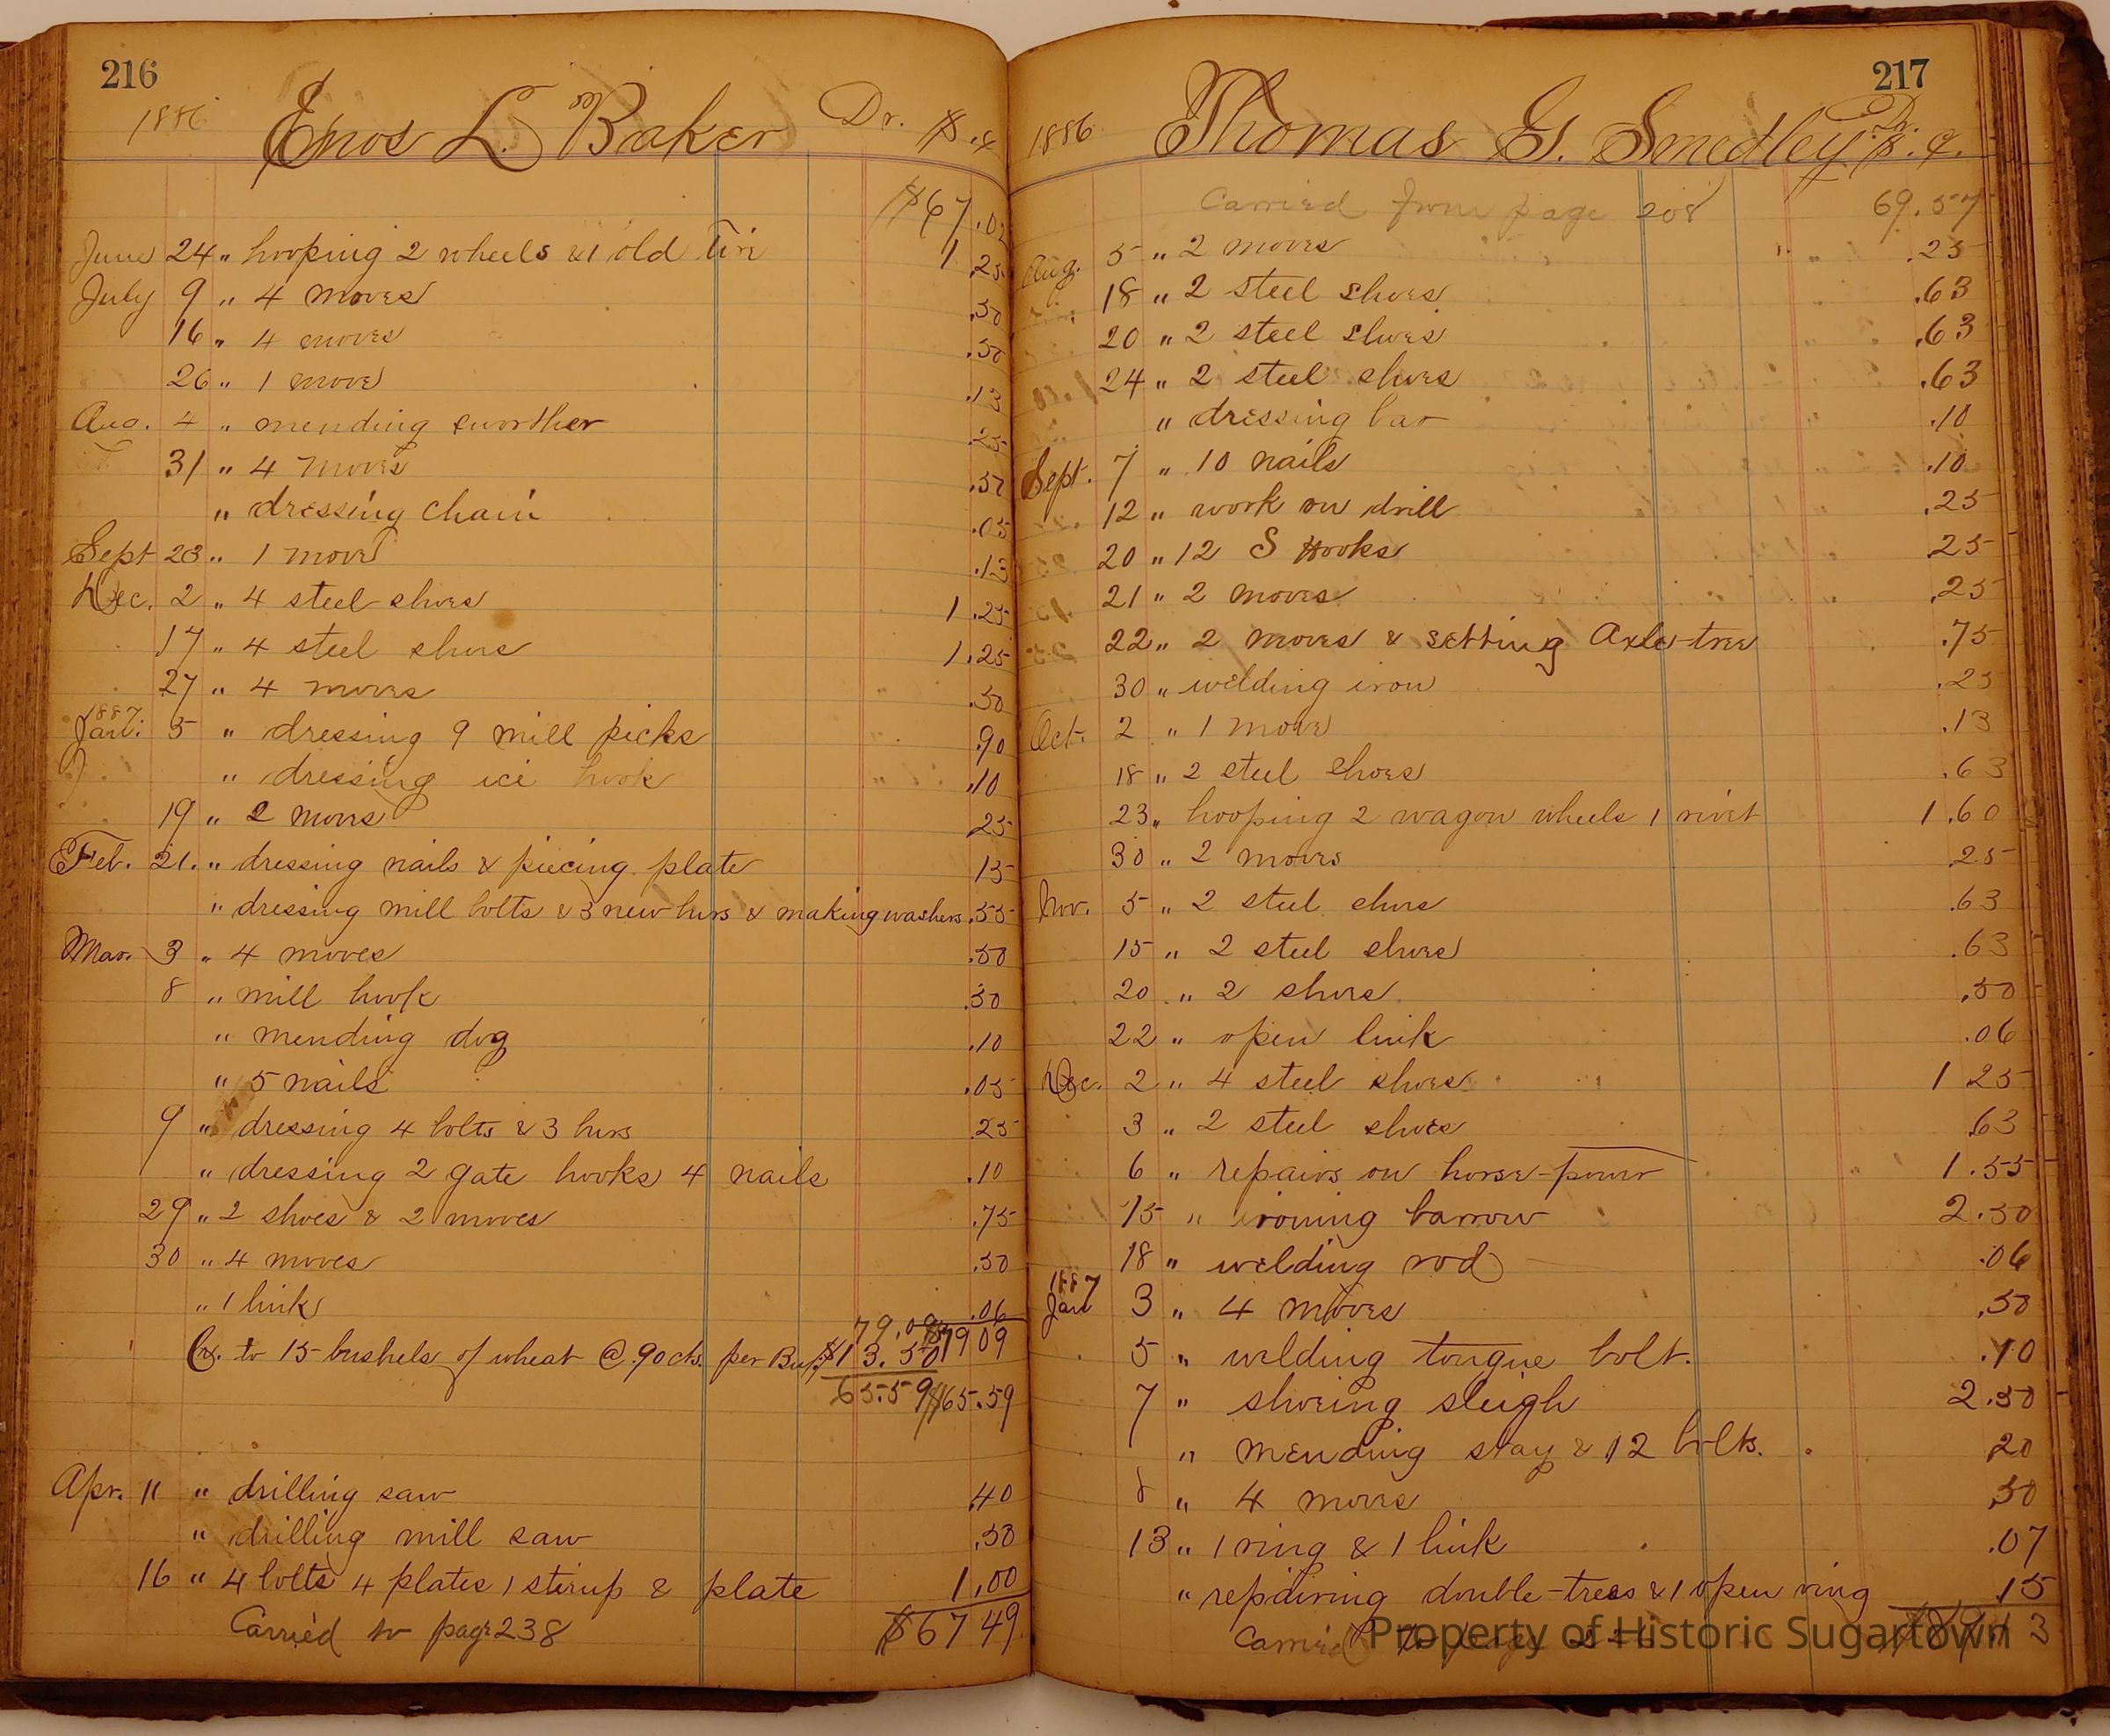 216
1886 Enos L. Baker Dr. $.¢
$67.02
June 24 " hooping 2 wheels & 1 old Tire 1.25
July 9 " 4 moves .50
16 " 4 moves .50
26 " 1 move .13
Aug. 4 " mending swather .25
31 " 4 moves .50
" dressing chain .05
Sept 23 " 1 move .13
Dec. 2 " 4 steel shoes 1.25
17 " 4 steel shoes 1.25
27 " 4 moves .50
1887
Jan. 5 " dressing 9 mill picks .90
" dressing ice hook .10
19 " 2 moves 25
Feb. 21. " dressing nails & piecing plate 15
" dressing mill bolts & 3 new burs & making washers .55
Mar. 3 " 4 moves .50
8 " mill hook .30
" mending dog .10
" 5 nails .05
9 " dressing 4 bolts & 3 burs .25
" dressing 2 gate hooks 4 nails .10
29 " 2 shoes & 2 moves .75
30 " 4 moves .50
" 1 link .06
79.09 $79 09
Cr. to 15 bushels of wheat @ .90 cts. per Bu. $13.50
65.59 $65.59
Apr. 11 " drilling saw .40
" drilling mill saw .50
16 " 4 bolts 4 plates 1 stirup & plate 1.00
Carried to page 238 $67 49
217
1886 Thomas G. Smedley Dr. $.¢.
Carried from page 208 69.57
Aug. 5 " 2 moves .25
18 " 2 steel shoes .63
20 " 2 steel shoes .63
24 " 2 steel shoes .63
" dressing bar .10
Sept. 7 " 10 nails .10
12 " work on drill .25
20 " 12 S Hooks 25
21 " 2 moves .25
22 " 2 moves & setting Axle-tree .75
30 " welding iron .25
Oct. 2 " 1 move .13
18 " 2 steel shoes .63
23 " hooping 2 wagon wheels 1 rivet 1.60
30 " 2 moves .25
Nov. 5 " 2 steel shoes .63
15 " 2 steel shoes .63
20 " 2 shoes .50
22 " open link .06
Dec. 2 " 4 steel shoes 1 25
3 " 2 steel shoes .63
6 " repairs on horse-power 1.55
15 " ironing barrow 2.50
18 " welding rod .06
1887
Jan 3 " 4 moves .50
5 " welding tongue bolt. .10
7 " shoeing sleigh 2.50
" mending stay & 12 bolts. 20
8 " 4 moves .50
13 " 1 ring & 1 link .07
" repairing double-trees & 1 open ring .15
Carried to page
Property of Historic Sugartown